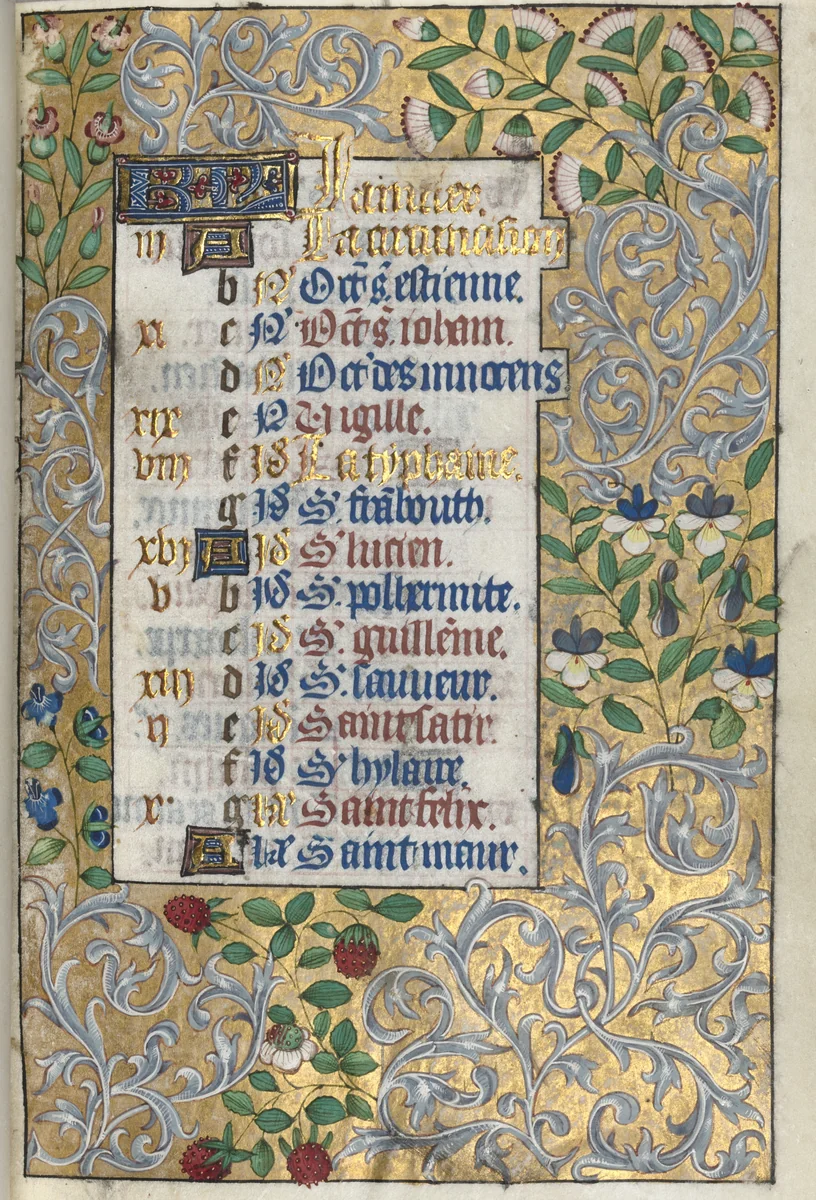 KL Januier.
iij A La circuncision
b N' Oct' s. estienne.
xi c N' Oct' s. iohan.
d N' Oct' des innocens
xix e N Uigille.
viij f Id La typhaine.
g Id S. frābouth.
xvj A Id S' lucien.
v b Id S. pol hermite.
c Id S' guillēme.
xiij d Id S. sauueur.
ij e Id Saint satir.
f Id S' hylaire.
x g kl' Saint felix.
A kl' Saint maur.